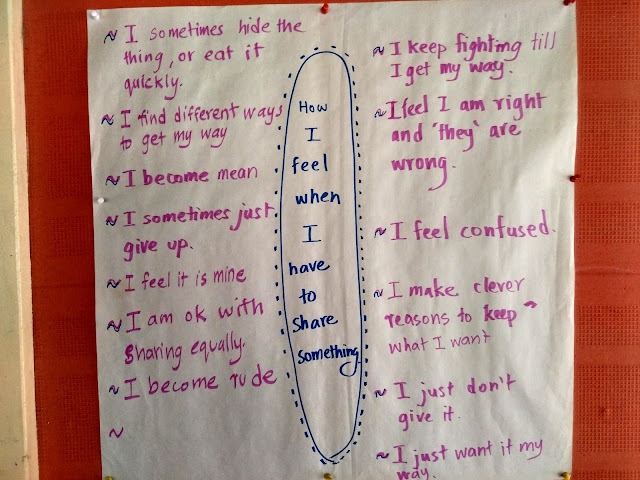 ~ I sometimes hide the
thing, or eat it
quickly.
~ I find different ways
to get my way
~ I become mean
~ I sometimes just
give up.
~ I feel it is mine
~ I am ok with
sharing equally.
~ I become rude
~
How
I
feel
when
I
have
to
share
something
~ I keep fighting till
I get my way.
~ I feel I am right
and 'they' are
wrong.
~ I feel confused.
~ I make clever
reasons to keep
what I want
~ I just don't
give it.
~ I just want it my
way.